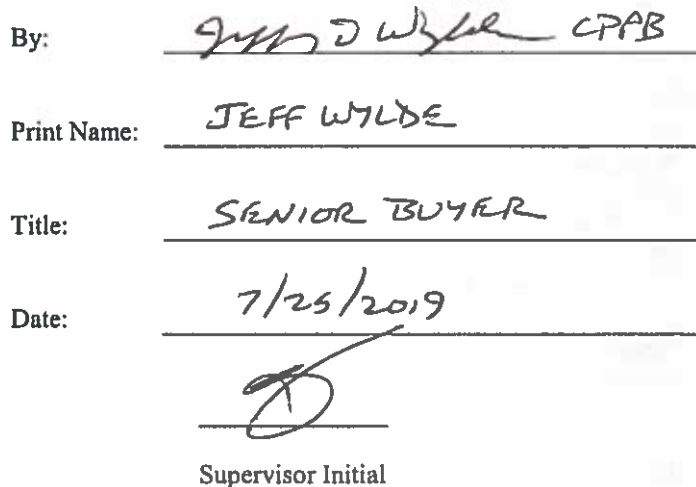 By: Jeffrey D Wylde CPPB
Print Name: JEFF WYLDE
Title: SENIOR BUYER
Date: 7/25/2019
Supervisor Initial